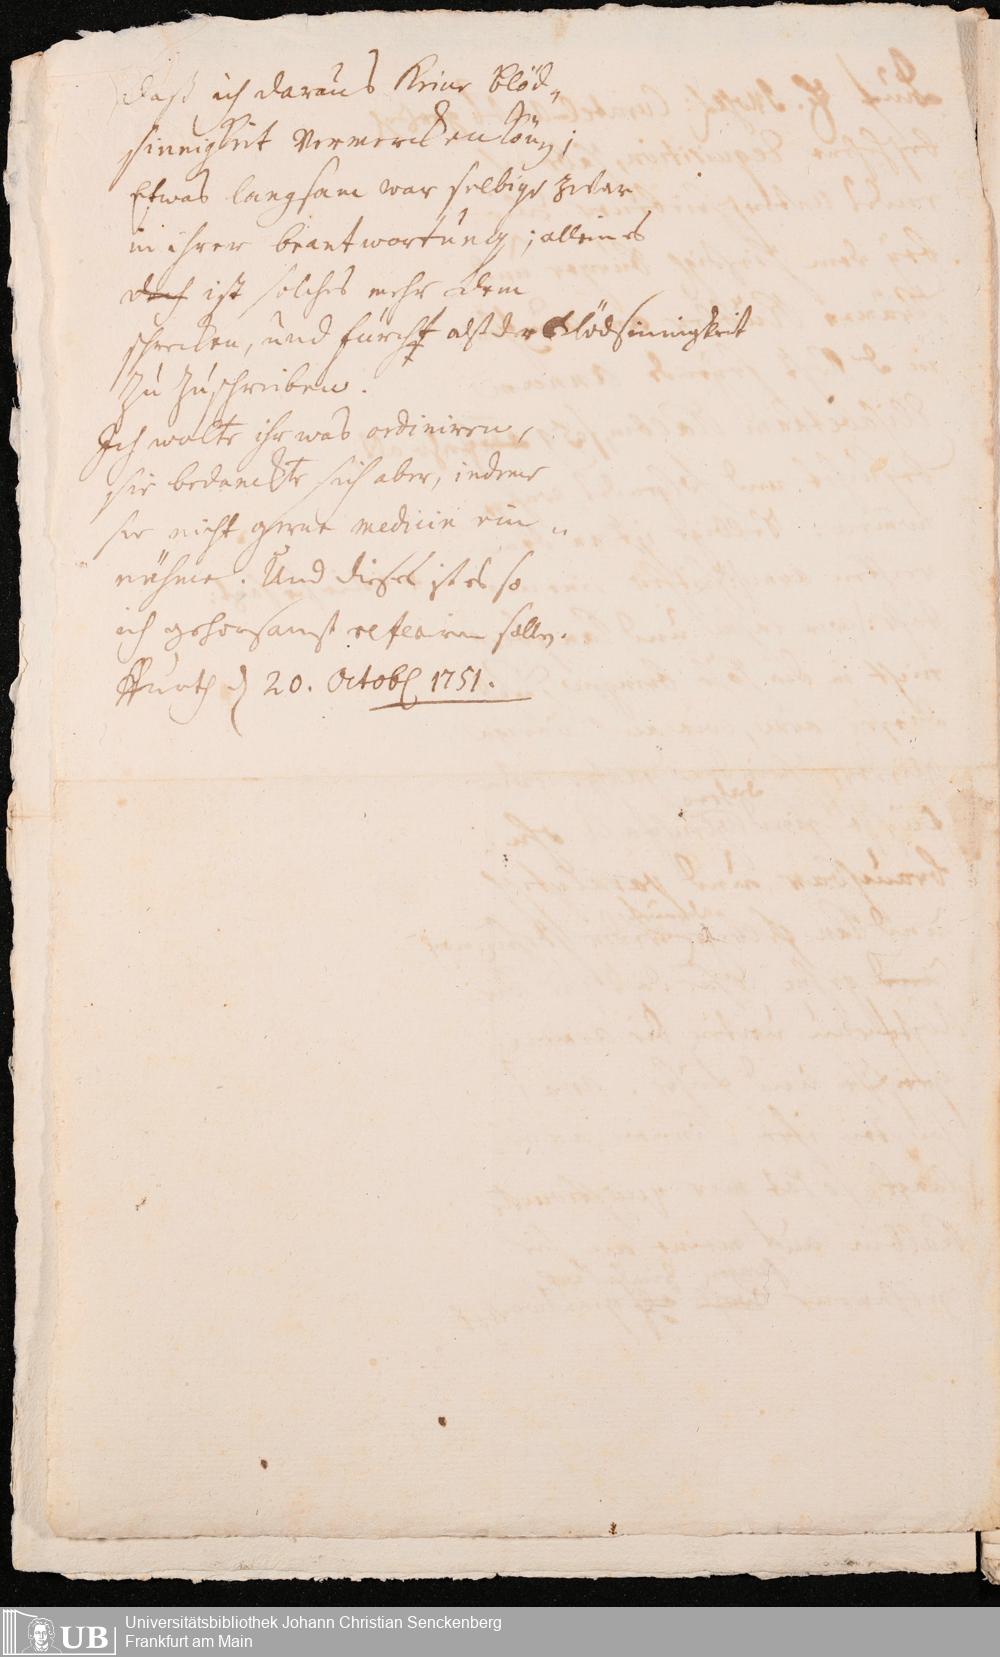 daß ich daraus keine blöd-
sinnigkeit vermercken könn;
Etwas langsam war selbige zwar
in ihrer beantwortung; allein es
doch ist solches mehr dem
schrecken, und furcht alß der blödsinnigkeit
zu zuschreiben.
Ich wolte ihr was ordiniren,
sie bedanckte sich aber, indeme
sie nicht gerne medicin ein-
nehme. Und dieses ist es so
ich gehorsamst referiren sollen.
Ffurth d 20. Octobr 1751.
UB
Universitätsbibliothek Johann Christian Senckenberg
Frankfurt am Main